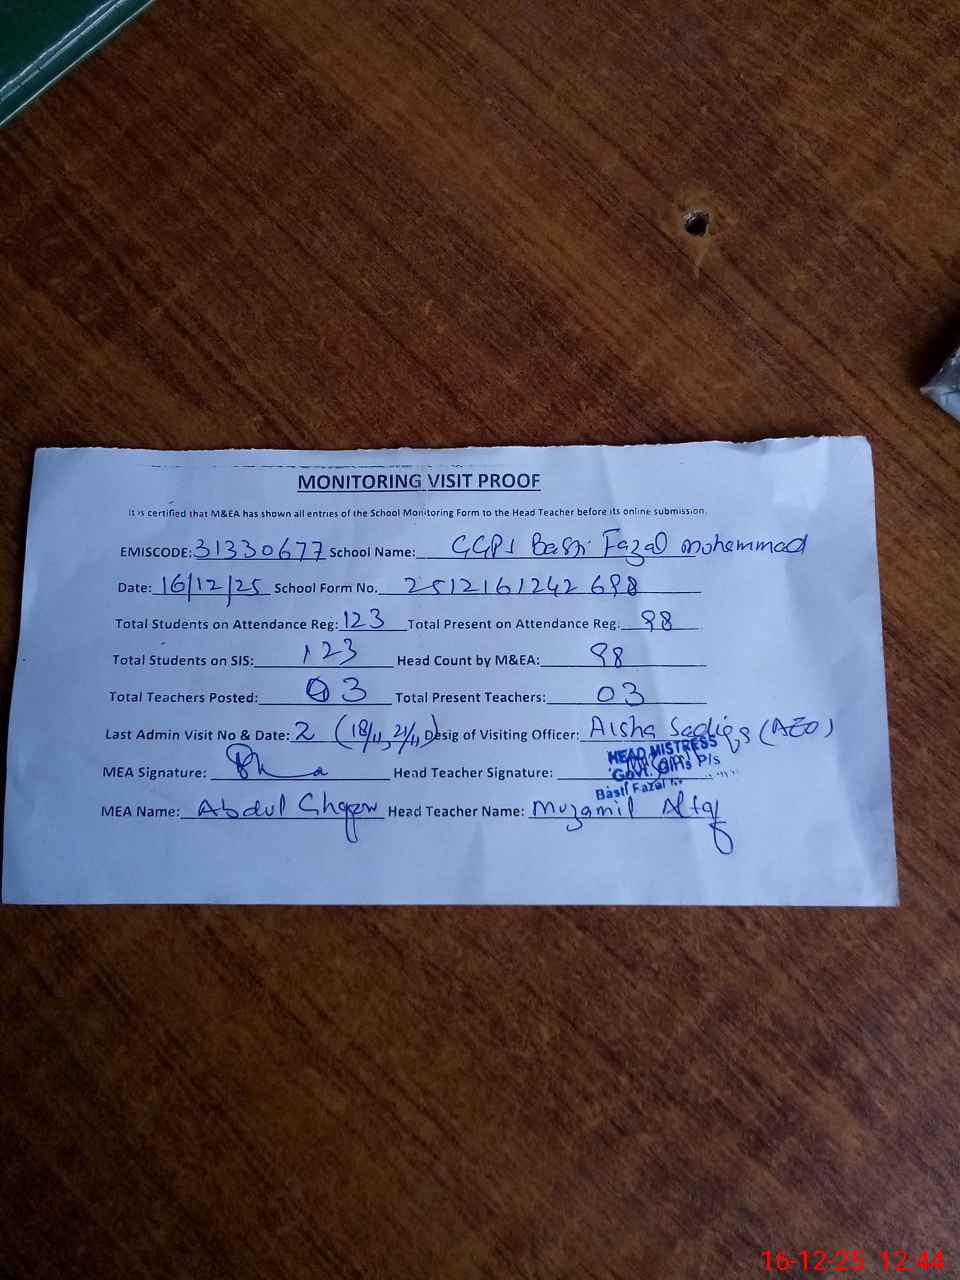 MONITORING VISIT PROOF
It is certified that M&EA has shown all entries of the School Monitoring Form to the Head Teacher before its online submission.
EMISCODE: 31330677 School Name: GGPS Basti Fazal mohammad
Date: 16/12/25 School Form No. 2512161242698
Total Students on Attendance Reg: 123 Total Present on Attendance Reg: 98
Total Students on SIS: 123 Head Count by M&EA: 98
Total Teachers Posted: 03 Total Present Teachers: 03
Last Admin Visit No & Date: 2 (18/11, 21/11) Desig of Visiting Officer: Aisha Sadiqa (AEO)
MEA Signature: Head Teacher Signature:
HEAD MISTRESS
Govt. Girls P/s
Basti Fazal
MEA Name: Abdul Head Teacher Name: Muzamil Altaf
16-12-25 12:44